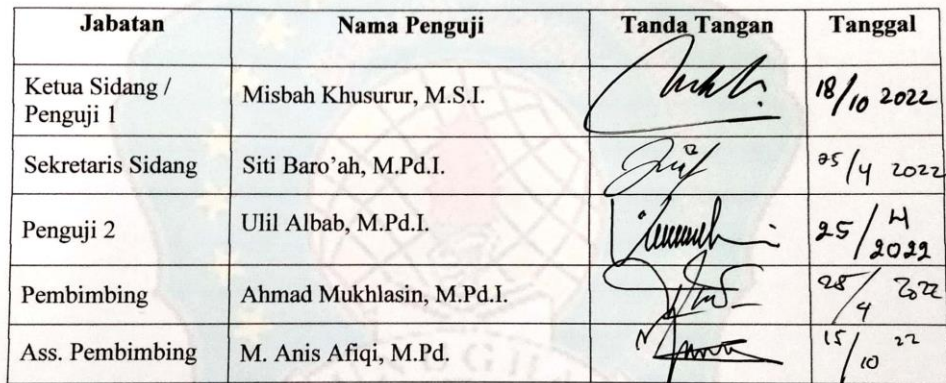 Jabatan Nama Penguji Tanda Tangan Tanggal
Ketua Sidang /
Penguji 1 Misbah Khusurur, M.S.I. 18/10 2022
Sekretaris Sidang Siti Baro'ah, M.Pd.I. 25/4 2022
Penguji 2 Ulil Albab, M.Pd.I. 25/4 2022
Pembimbing Ahmad Mukhlasin, M.Pd.I. 28/4 2022
Ass. Pembimbing M. Anis Afiqi, M.Pd. 15/10 22